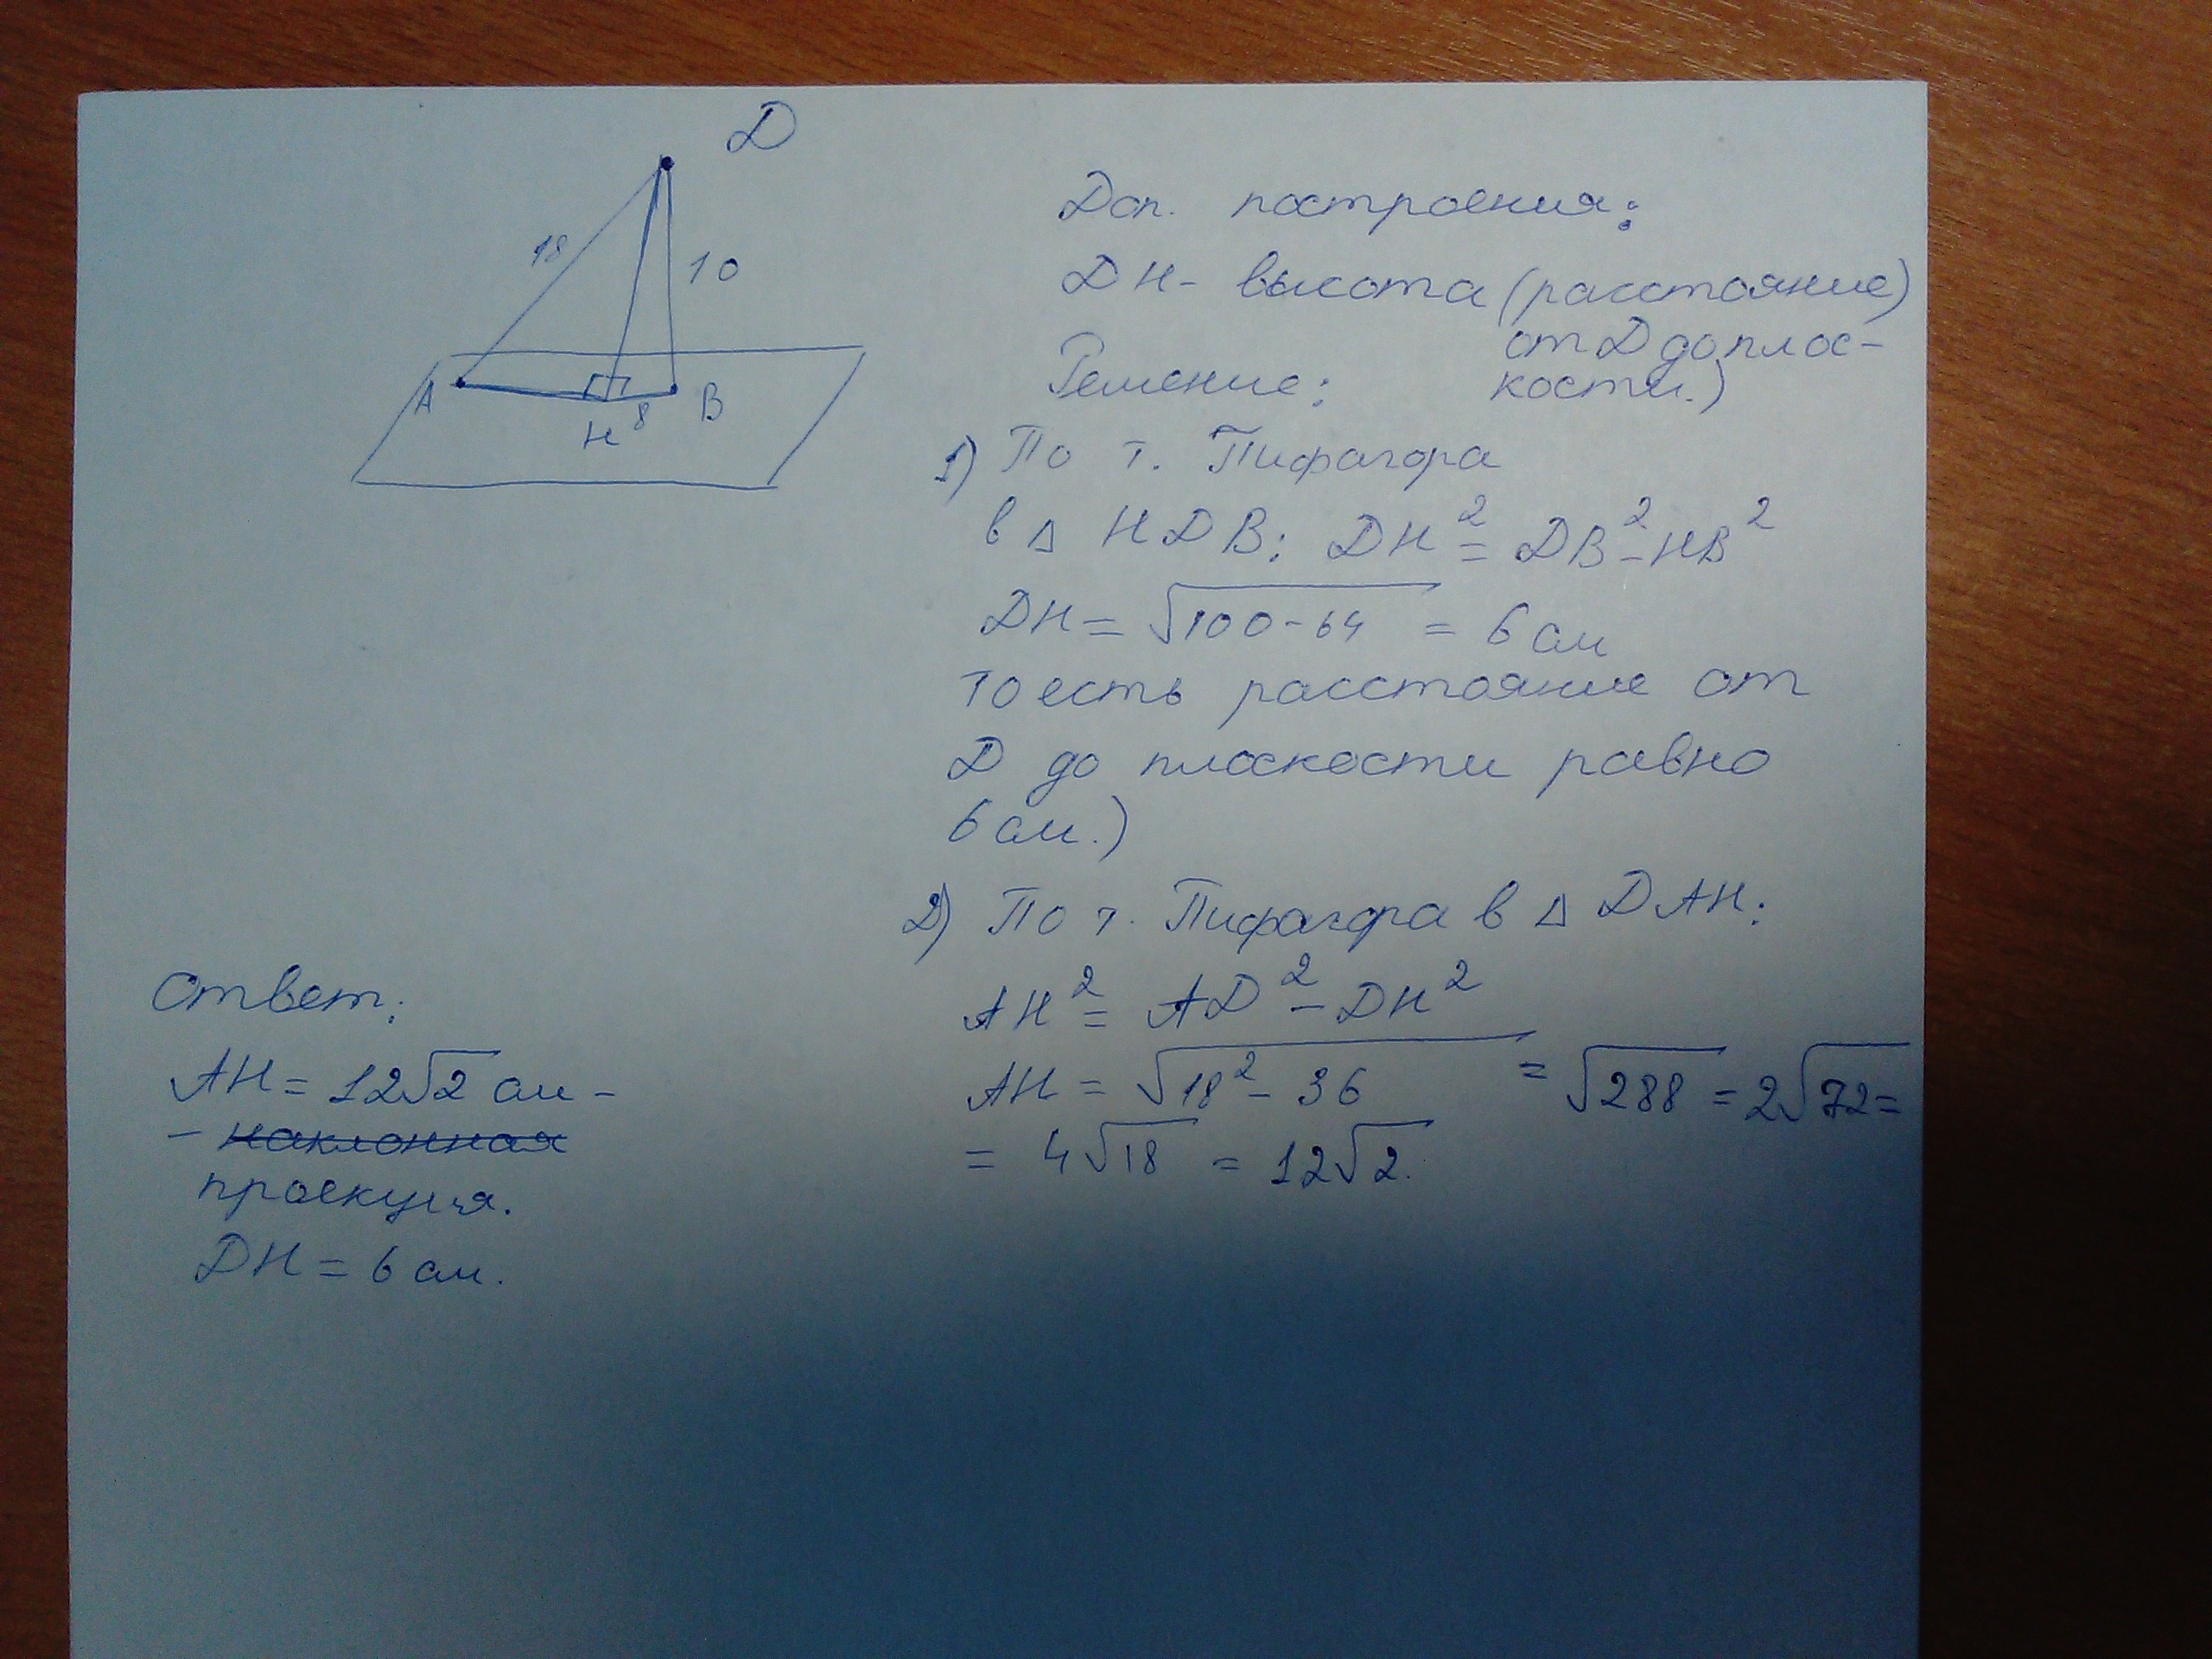 D
18
10
A
H
8
B
Доп. построения:
DH- высота (расстояние)
от D до плос-
кости.)
Решение:
1) По т. Пифагора
в △ HDB: DH² = DB² - HB²
DH = √100-64 = 6 см
то есть расстояние от
D до плоскости равно
6 см.)
2) По т. Пифагора в △ DAH:
AH² = AD² - DH²
AH = √18² - 36 = √288 = 2√72 =
= 4√18 = 12√2.
Ответ:
AH = 12√2 см -
- наклонная
проекция.
DH = 6 см.